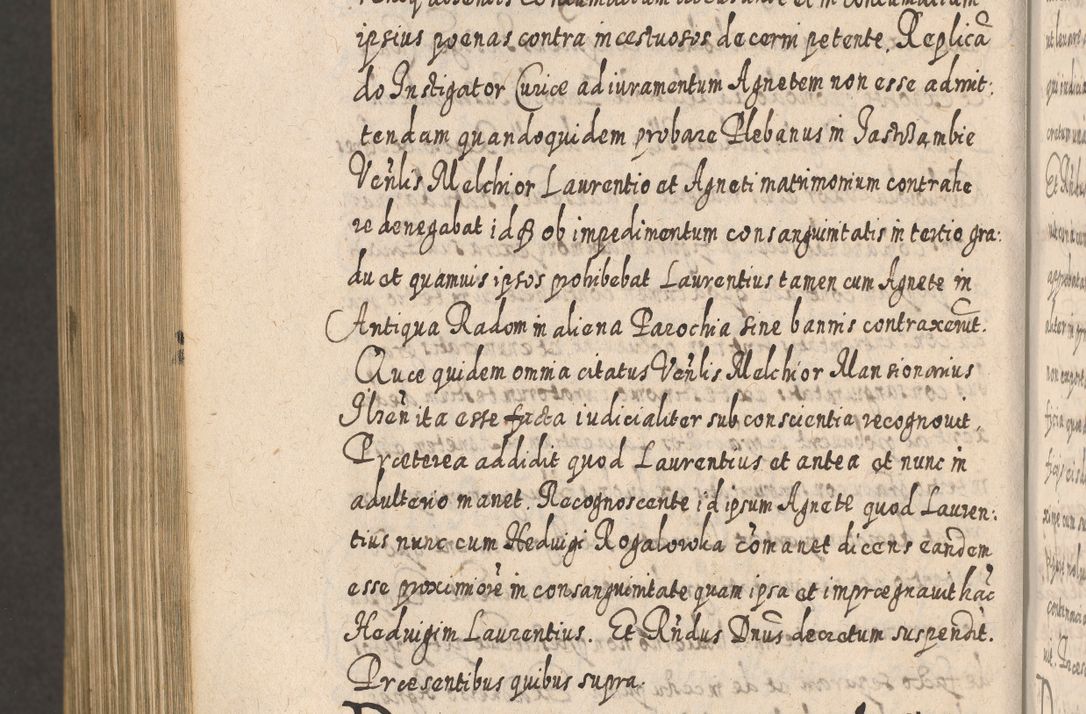 ipsius poenas contra incestuosos decerni petente. Replicā
do Instigator Curiæ ad iuramentum Agnetem non esse admit:
tendam quandoquidem probare Plebanus in Jastrzambie
Ven̄lis Melchior Laurentio et Agneti matrimonium contrahe
re denegabat idqꝫ ob impedimentum consanguinitatis in tertio gra:
du et quamuis ipsos prohibebat Laurentius tamen cum Agnete in
Antiqua Radom in aliena Parochia sine bannis contraxerūt.
Quæ quidem omnia citatus Ven̄lis Melchior Mansionarius
Ilzen̄ ita esse facta iudicialiter sub conscientia recognouit.
Præterea addidit quod Laurentius et antea et nunc in
adulterio manet. Recognoscente id ipsum Agnete quod Lauren:
tius nunc cum Hedvigi Rogalowka cōmanet dicens eandem
esse proximiorē in consanguinitate quam ipsa et imprægnauit hāc
Hedvigim Laurentius. Et Rn̄dus Dn̄us decretum suspendit.
Præsentibus quibus supra.